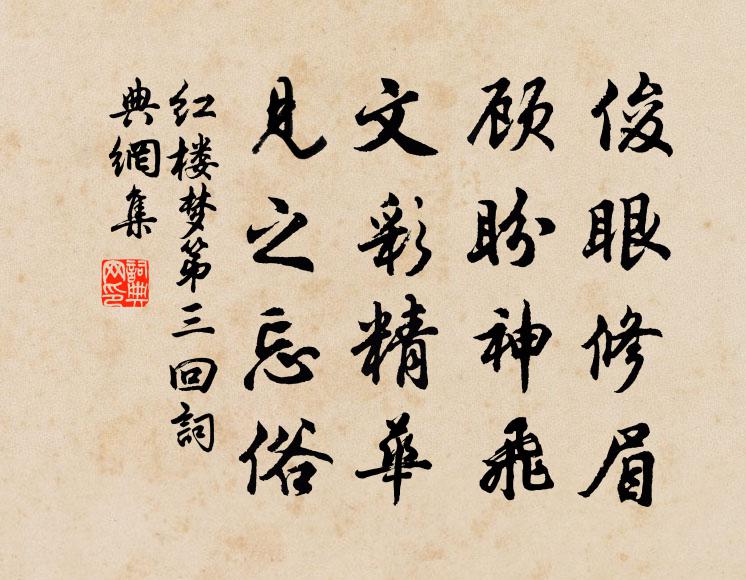 俊眼修眉
顾盼神飞
文彩精华
见之忘俗
红楼梦第三回詞
典網集
詞典
网印